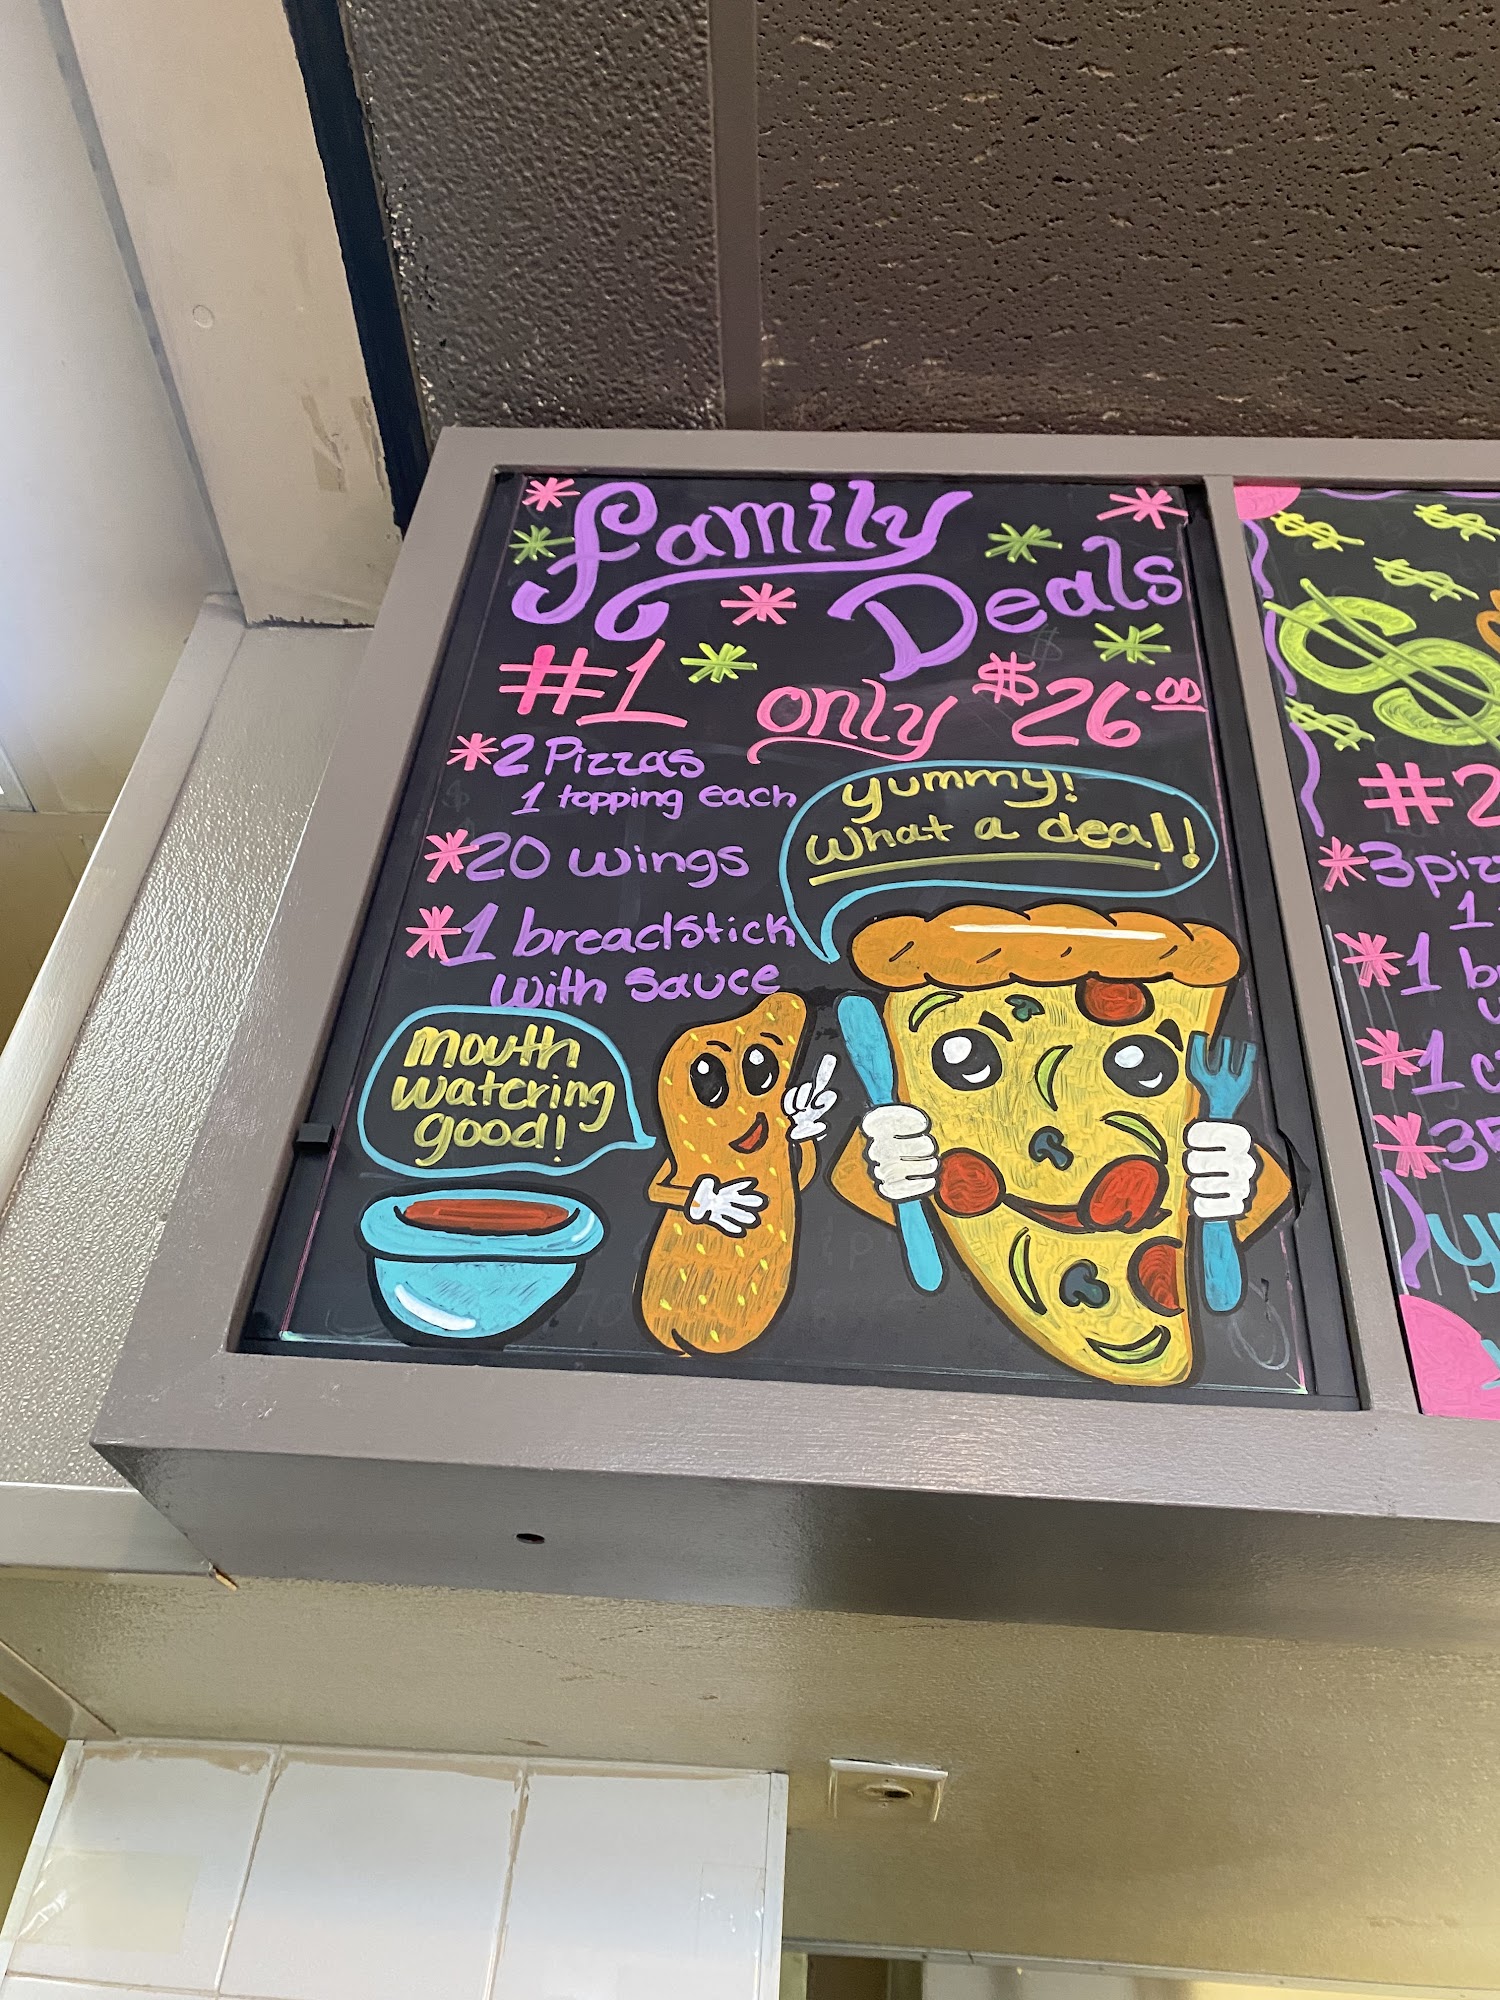 Family
Deals
#1
only $26.00
*2 Pizzas
1 topping each
*20 wings
*1 breadstick
with sauce
yummy!
what a deal!
mouth
watering
good!
$
#2
*3
1
*1
*1